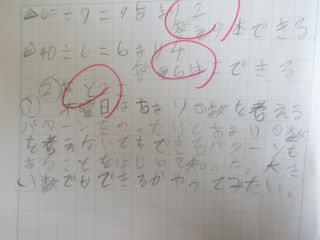 △65÷7=9あまり2
答え9本できる。
△40÷6=6あまり4
答え6はこできる
②あと2こ
① 木曜日はあまりの数を考える
パターンをやったけどあまりの数
を考えないでもできるパターンも
あることをはじめて知った。大き
い数でもできるかやってみたい。